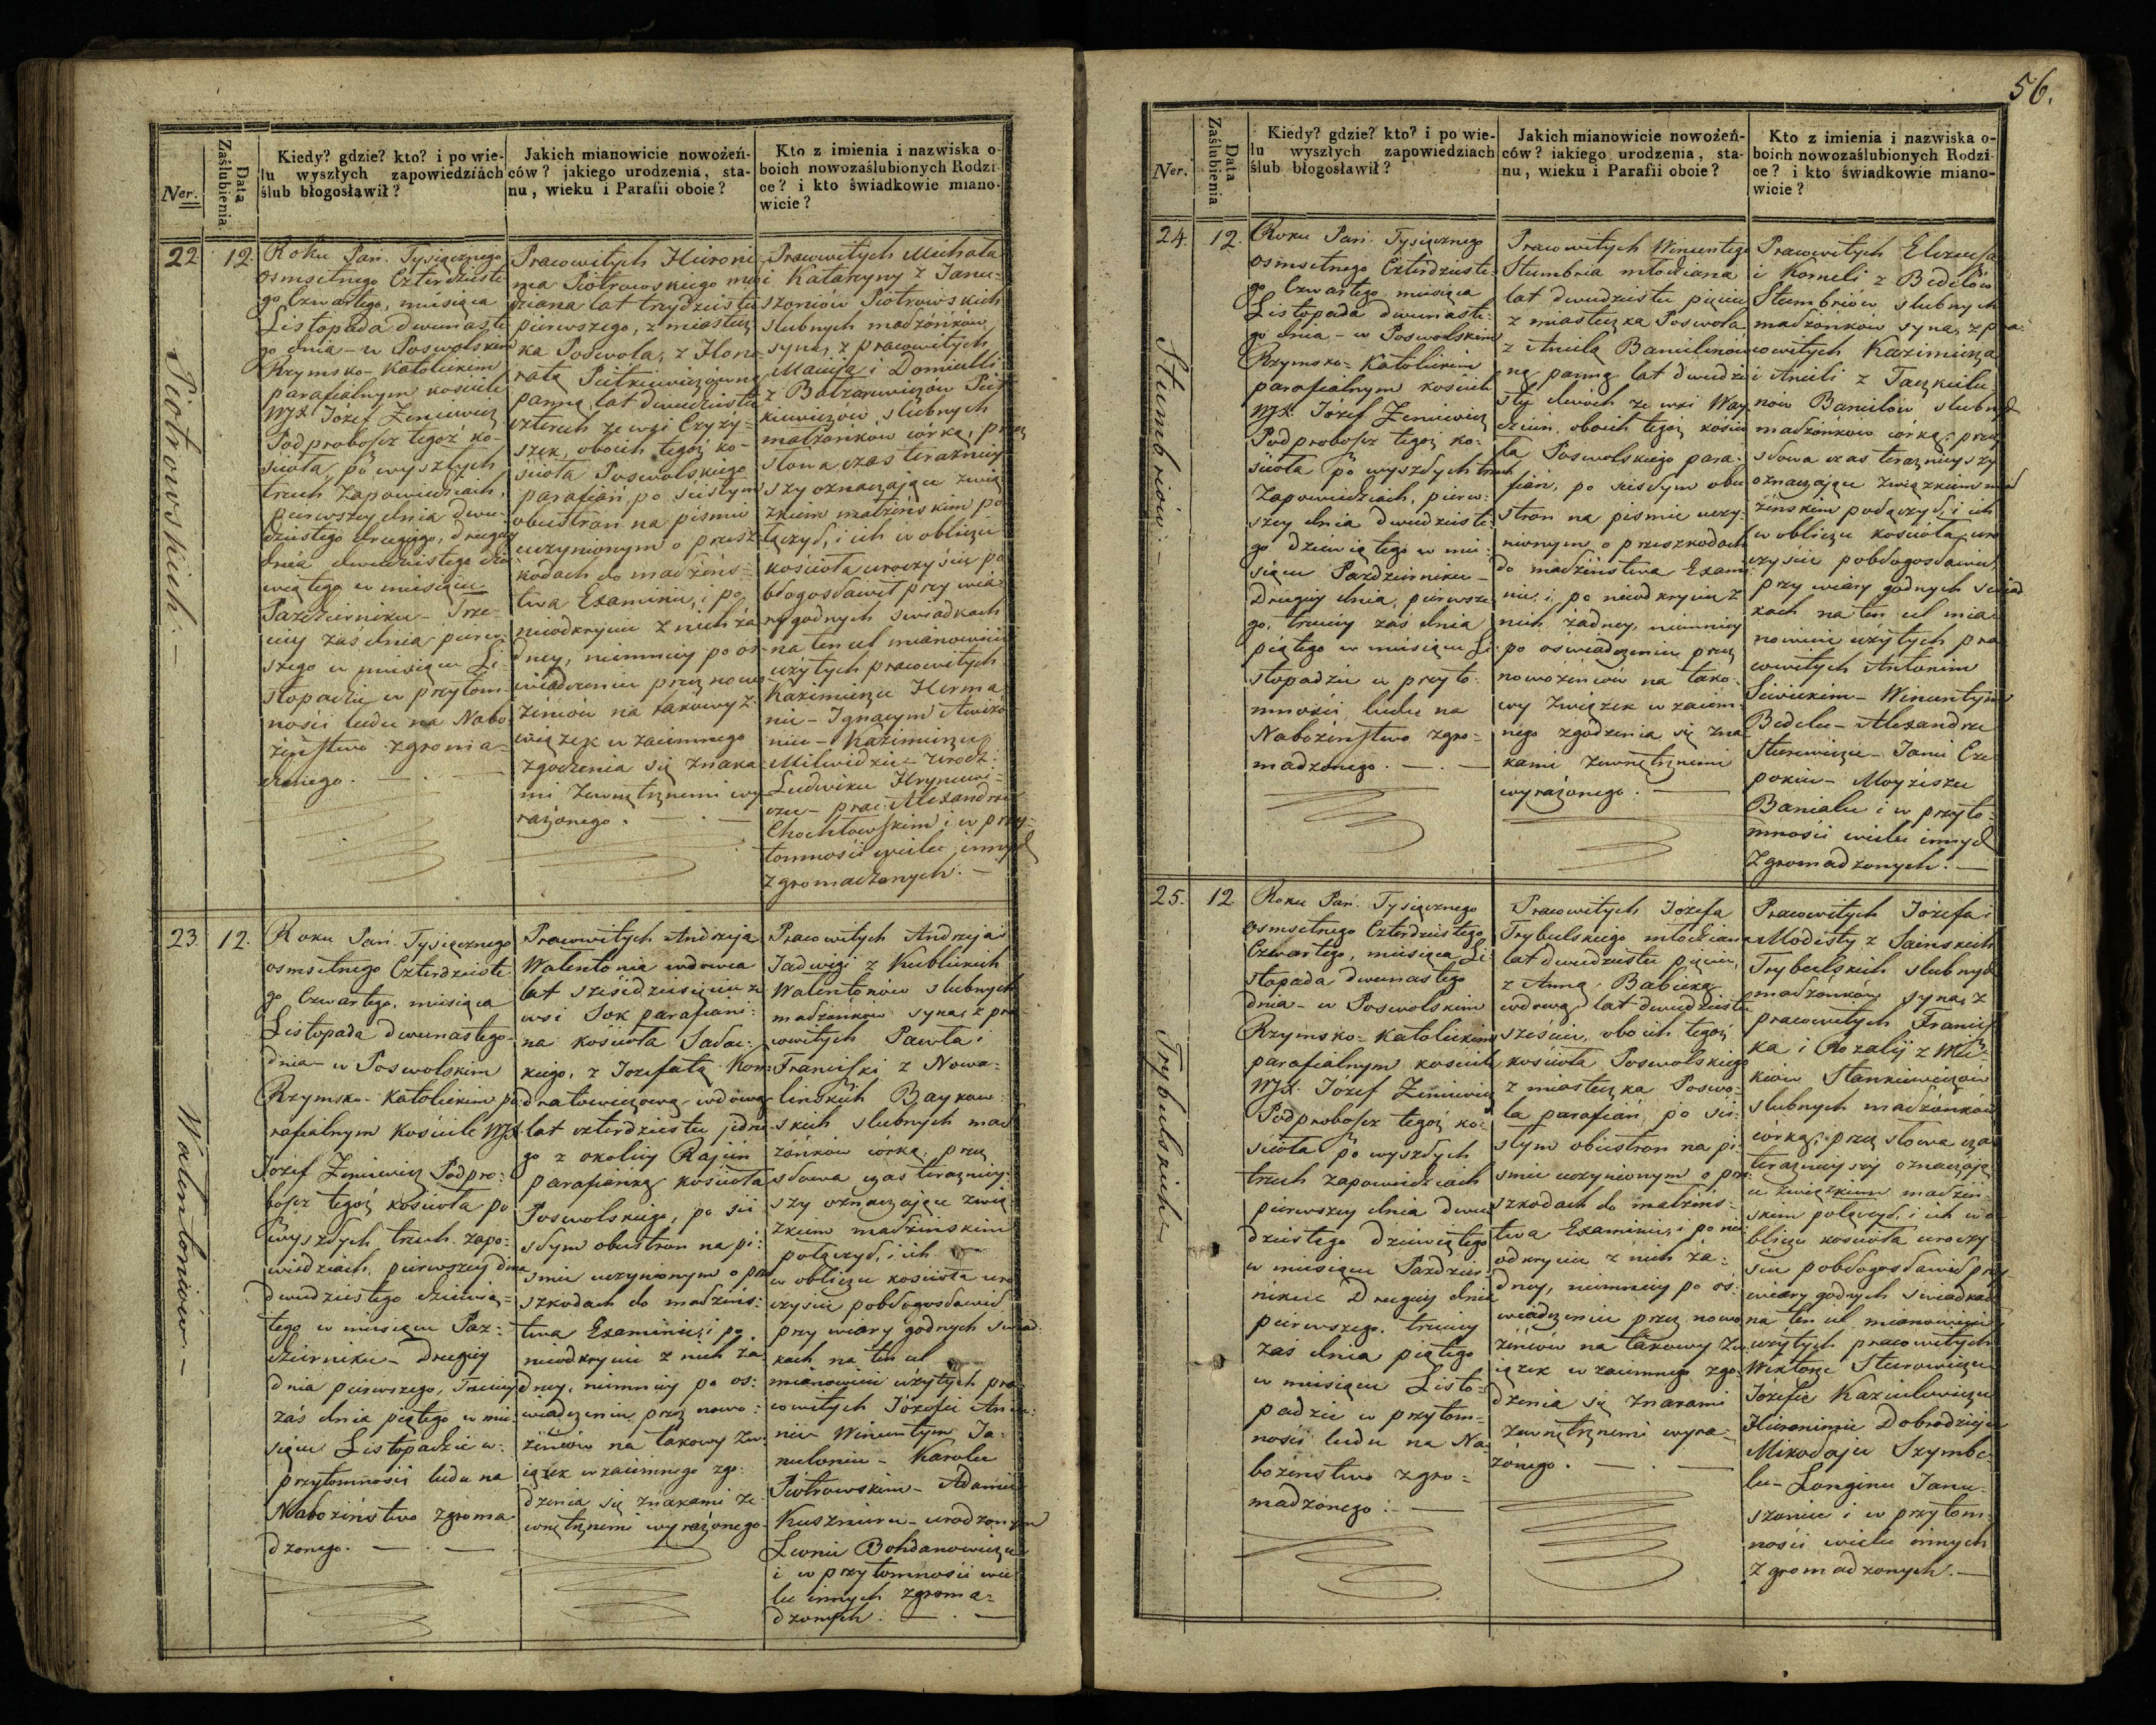 56.
Ner.
Data Zaślubienia
Kiedy? gdzie? kto? i po wie-
lu wyszłych zapowiedziach
ślub błogosławił?
Jakich mianowicie nowożeń-
ców? jakiego urodzenia, sta-
nu, wieku i Parafii oboie?
Kto z imienia i nazwiska o-
boich nowozaślubionych Rodzi-
ce? i kto świadkowie miano-
wicie?
22
12
Piotrowskich. —
Roku Pań. Tysiącznego
osmsetnego Czterdzieste
go Czwartego, miesiąca
Listopada dwunaste
go dnia – w Poswolskim
Rzymsko-Katolickim
parafialnym kościele
WJX Józef Zeniewicz
Podproboszcz tegoż ko-
ścioła, po wyszłych
trzech Zapowiedziach,
pierwszey dnia dwu-
dziestego drugiego, drugiey
dnia dwudziestego dzie
wiątego w miesiącu
Pazdzierniku – Trze-
ciey zaś dnia pierw-
szego w miesiącu Li-
stopadzie w przytom-
ności ludu na Nabo
żeństwo zgroma-
dzonego. — . —
Pracowitych Hieroni
ma Piotrowskiego mło
dziana lat trzydziestu
pierwszego, z miastecz
ka Poswola, z Hono-
ratą Pietkiewiczówną
panną lat dwudziestu
czterech ze wsi Czyży-
szek, oboich tegoż ko-
ścioła Poswolskiego
parafian, po ścisłym
obustron na piśmie
uczynionym o przesz
kodach do małżeńs-
twa Examinie, i po
nieodkryciu z nich ża
dney, niemniey po oś-
wiadczeniu przez nowo
żeńców na takowy z
wiązek wzaiemnego
zgodzenia się znaka
mi zewnętrznemi wy
rażonego. — . —
Pracowitych Michała
i Katarzyny z Janu-
szoniów Piotrowskich
slubnych małżonków
syna, z pracowitych
Macieja i Domicelli
z Bałzarewiczów Piet
kiewiczów slubnych
małżonków córką, przez
słowa czas teraźniey
szy oznaczające zwią
zkiem małżeńskim po
łączył, i ich w obliczu
kościoła uroczyście po
błogosławił przy wia
rygodnych świadkach
na ten cel mianowicie
użytych pracowitych
Kazimierzu Herma
nie – Ignacym Awiżo
niu – Kazimierzu
Milwidzie – Urodz.
Ludwiku Hryniewi-
czu – prac. Alexandrze
Chochłowskim i w przy-
tomności wielu innych
zgromadzonych. —
23.
12.
Walentoniów —
Roku Pań. Tysiącznego
osmsetnego Czterdzieste
go Czwartego, miesiąca
Listopada dwunastego
dnia – w Poswolskim
Rzymsko-Katolickim pa
rafialnym Kościele WJX
Józef Zeniewicz Podpro-
boszcz tegoż kościoła po
wyszłych trzech zapo-
wiedziach, pierwszey dnia
dwudziestego dziewią-
tego w miesiącu Paz-
dzierniku – Drugiey
dnia pierwszego, Trzeciey
zaś dnia piątego w mie
siącu Listopadzie w
przytomności ludu na
Nabożeństwo zgroma
dzonego. — . —
Pracowitych Andrzeja
Walentonia wdowca
lat sześćdziesięciu ze
wsi Sok parafiani-
na kościoła Sałac-
kiego, z Jozefatą Kon-
dratowiczową wdową
lat czterdziestu jedne
go z okolicy Rajun
parafianką kościoła
Poswolskiego, po ści
słym obustron na pi-
śmie uczynionym o prze
szkodach do małżeńs-
twa Examinie, i po
nieodkryciu z nich ża
dney, niemniey po oś-
wiadczeniu przez nowo-
żeńców na takowy zw-
iązek wzaiemnego zgo-
dzenia się znakami ze
wnętrznemi wyrażonego
Pracowitych Andrzeja i
Jadwigi z Kublickich
Walentoniów slubnych
małżonków syna, z pra
cowitych Pawła i
Franciszki z Nowa-
lińskich Baykow-
skich slubnych mał
żonków córką, przez
słowa czas teraźniey-
szy oznaczające zwią
zkiem małżeńskim
połączył, i ich
w obliczu kościoła uro
czyście pobłogosławił
przy wiary godnych świad-
kach na ten cel
mianowicie użytych pra
cowitych Józefie An
niu Wincentym Ja-
nuloniu – Karolu
Piotrowskim – Adamie
Kuszniru – urodzonym
Leonie Bohdanowiczu
i w przytomności wie
lu innych zgroma-
dzonych. — . —
Ner.
Data Zaślubienia
Kiedy? gdzie? kto? i po wie-
lu wyszłych zapowiedziach
ślub błogosławił?
Jakich mianowicie nowożeń-
ców? iakiego urodzenia, sta-
nu, wieku i Parafii oboie?
Kto z imienia i nazwiska o-
boich nowozaślubionych Rodzi-
ce? i kto świadkowie miano-
wicie?
24.
12.
Stumbriów. —
Roku Pań. Tysiącznego
osmsetnego Czterdzieste-
go Czwartego miesiąca
Listopada dwunaste-
go dnia – w Poswolskim
Rzymsko-Katolickim
parafialnym kościele
WJX. Józef Zeniewicz
Podproboszcz tegoż ko-
ścioła po wyszłych trzech
Zapowiedziach, pierw-
szey dnia dwudzieste-
go dziewiątego w mie-
siącu Pazdzierniku –
Drugiey dnia, pierwsze
go, trzeciey zaś dnia
piątego w miesiącu Li-
stopadzie w przyto-
mności ludu na
Nabożeństwo zgro-
madzonego. — . —
Pracowitych Wincentego
Stumbria młodziana
lat dwudziestu pięciu
z miasteczka Poswola
z Anielą Baniulinów
ną panną lat dwudzie
stu dwóch ze wsi Way
dziun, oboich tegoż kościo
ła Poswolskiego para-
fian, po ścisłym obu
stron na piśmie uczy-
nionym o przeszkodach
do małżeństwa Exami
nie, i po nieodkryciu z
nich żadney, niemniey
po oświadczeniu przez
nowożeńców na tako-
wy związek wzaiem-
nego zgodzenia się zna
kami zewnętrznemi
wyrażonego. —
Pracowitych Elzeusza
i Korneli z Bedelów
Stumbriów slubnych
małżonków syna, z pra-
cowitych Kazimierza
i Anieli z Taczkielu-
nów Baniulow slubnych
małżonków córką, przez
słowa czas teraźnieyszy
oznaczające związkiem mał
żeńskim połączył, i ich
w obliczu kościoła uro
czyście pobłogosławił
przy wiary godnych świad
kach na ten cel mia-
nowicie użytych pra
cowitych Antonim
Siwickim – Wincentym
Bedelu – Alexandrze
Sturewiczu – Janie Cze
pokiu – Moyżeszu
Banialu i w przyto-
mności wielu innych
Zgromadzonych. —
25.
12
Trybulskich —
Roku Pań. Tysiącznego
osmsetnego Czterdziestego
Czwartego, miesiąca Li-
stopada dwunastego
dnia – w Poswolskim
Rzymsko-Katolickim
parafialnym kościele
WJX. Józef Zeniewicz
Podproboszcz tegoż ko-
ścioła po wyszłych
trzech zapowiedziach
pierwszey dnia dwu
dziestego dziewiątego
w miesiącu Pazdzier-
niku Drugiey dnia
pierwszego, trzeciey
zaś dnia piątego
w miesiącu Listo-
padzie w przytom-
ności ludu na Na-
bożeństwo zgro-
madzonego. —
Pracowitych Józefa
Trybulskiego młodziana
lat dwudziestu pięciu,
z Anną Babicką
wdową lat dwudziestu
sześciu, oboich tegoż
kościoła Poswolskiego
z miasteczka Poswo-
la parafian, po ści-
słym obustron na pi-
śmie uczynionym o prze-
szkodach do małżeńs-
twa Examinie, i po nie
odkryciu z nich ża-
dney, niemniey po oś-
wiadczeniu przez nowo
żeńców na takowy zw
iązek wzaiemnego zgo-
dzenia się znakami
zewnętrznemi wyra-
żonego. — . —
Pracowitych Józefa i
Modesty z Sainskich
Trybulskich slubnych
małżonków syna, z
pracowitych Francisz
ka i Rozalij z Mic
kiów Stankiewiczów
slubnych małżonków
córką, przez słowa czas
teraźnieyszy oznaczają
ce związkiem małżeń-
skim połączył, i ich w o
bliczu kościoła uroczy
ście pobłogosławił przy
wiary godnych świadkach
na ten cel mianowicie
użytych pracowitych
Wiktorze Sturewiczu
Józefie Kaziulewiczu
Hieronimie Dobrodzieju
Mikołaju Szymbe-
lu – Longinu Janu-
szoniu i w przytom-
ności wielu innych
Zgromadzonych. —